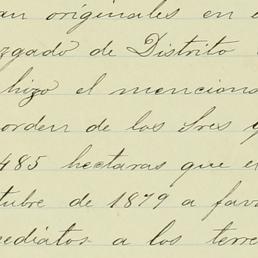 an originales en e
zgado de Distrito
hizo el menciona
orden de los Sres y
485 hectaras que e
tubre de 1879 a fav
mediatos a los terre